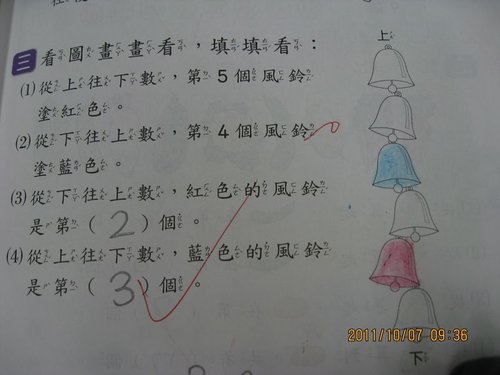 三 看圖畫畫看，填填看：
(1)從上往下數，第5個風鈴
塗紅色。
(2)從下往上數，第4個風鈴
塗藍色。
(3)從下往上數，紅色的風鈴
是第（2）個。
(4)從上往下數，藍色的風鈴
是第（3）個。
上
下
2011/10/07 09:36